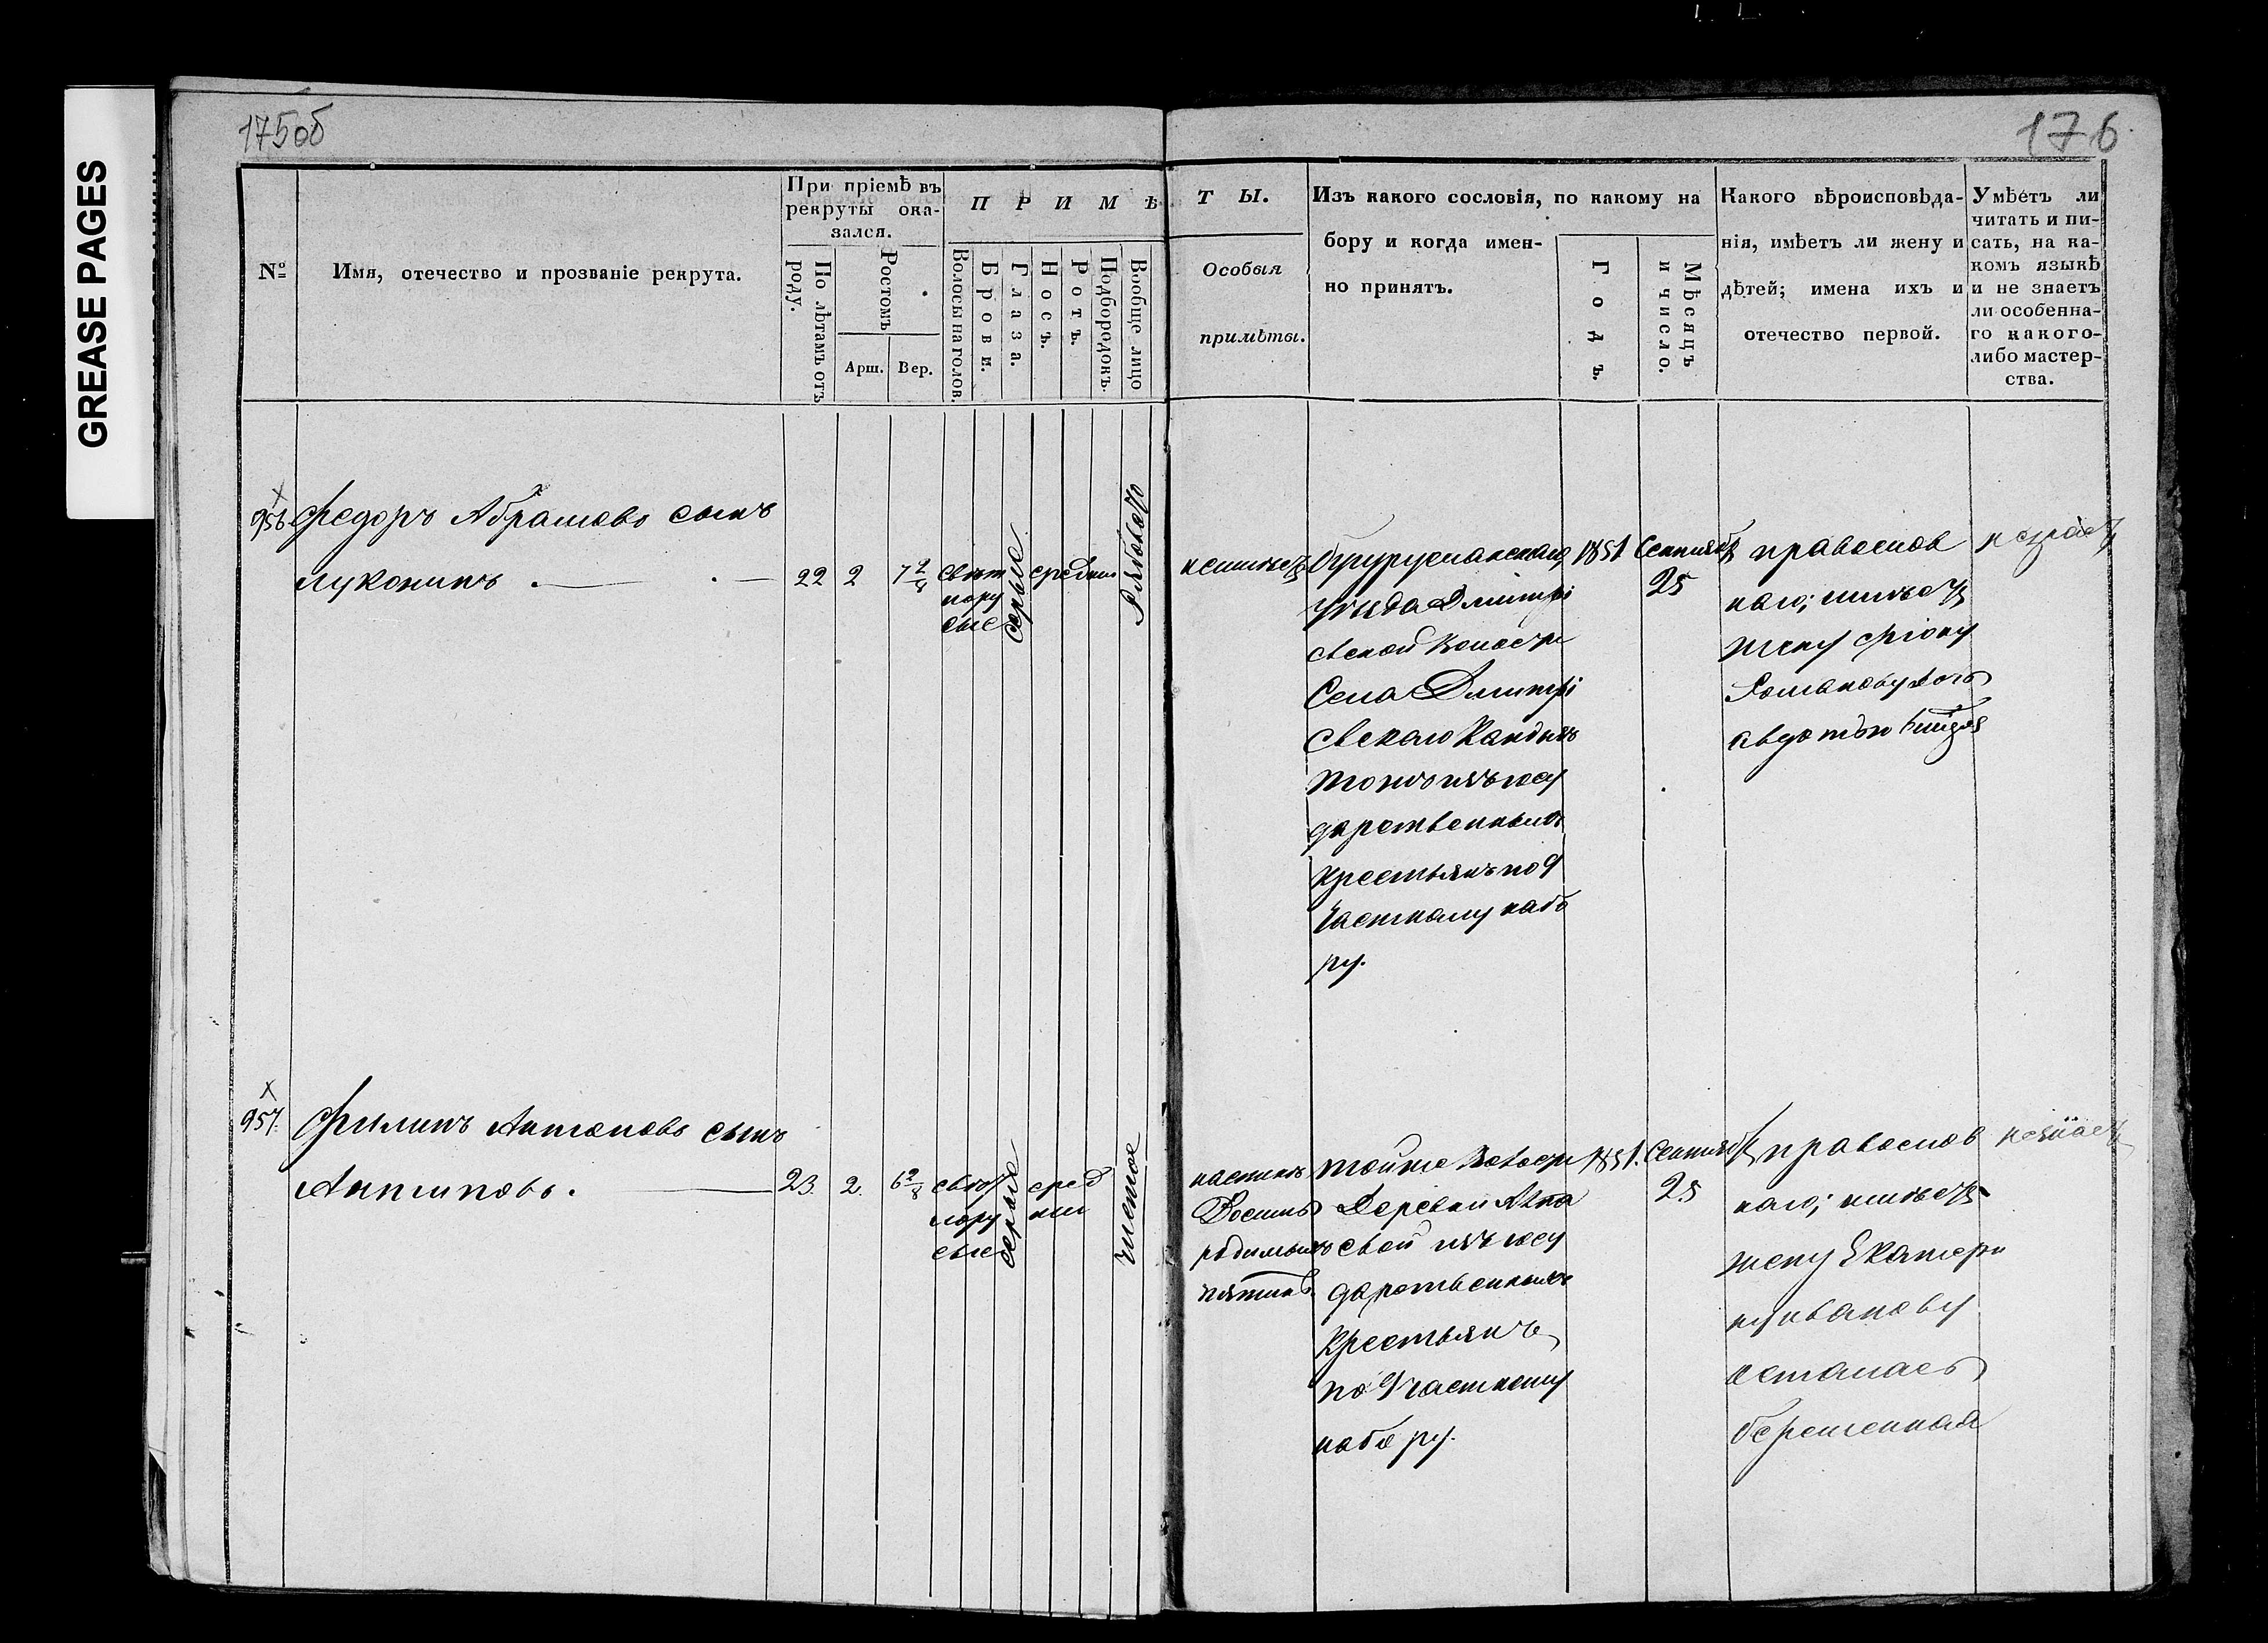 GREASE PAGES
175об
176
№
Имя, отечество и прозваніе рекрута.
При пріемѣ въ
рекруты ока-
зался.
По лѣтамъ отъ
роду.
Ростомъ
Арш.
Вер.
П Р И М Ѣ
Волосы на голов.
Брови.
Глаза.
Носъ.
Ротъ.
Подбородокъ.
Вообще лицо
Т Ы.
Особыя
примѣты.
Изъ какого сословія, по какому на
бору и когда имен-
но принятъ.
Годъ.
Мѣсяцъ
и число.
Какого вѣроисповѣда-
нія, имѣетъ ли жену и
дѣтей; имена ихъ и
отечество первой.
Умѣетъ ли
читать и пи-
сать, на ка-
комъ языкѣ
и не знаетъ
ли особенна-
го какого-
либо мастер-
ства.
956
Федоръ Абрамовъ сынъ
Луконинъ.
22
2
7 2/8
свѣт
лору
сые
серые
средни
Рябовато
неимѣетъ
Бугурусланскаго
уѣзда Дмитрі
евской волости
Села Дмитрі
евскаго
тожъ изъ госу
дарственныхъ
крестьянъ по У
частному набо
ру.
1851
Сентября
25
православ
наго; имѣетъ
жену
Романову дочь
Авдотью
незнаетъ
957.
Филипъ Антоновъ сынъ
Антиповъ.
23.
2.
6 2/8
свѣт
лору
сые
серые
сред
ни
чистое
родимыхъ
пятна.
тойже волости
Деревни
евой изъ госу
дарственныхъ
крестьянъ
по Участному
набору.
1851.
Сентября
25
православ
наго; имѣетъ
жену Екатери
ну Иванову
осталась
беременная
незнаетъ